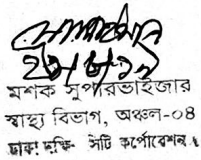 মশক সুপারভাইজার
স্বাস্থ্য বিভাগ, অঞ্চল-০৪
ঢাকা দক্ষিণ সিটি কর্পোরেশন